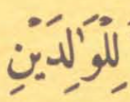 لِلْوَٰلِدَيْنِ